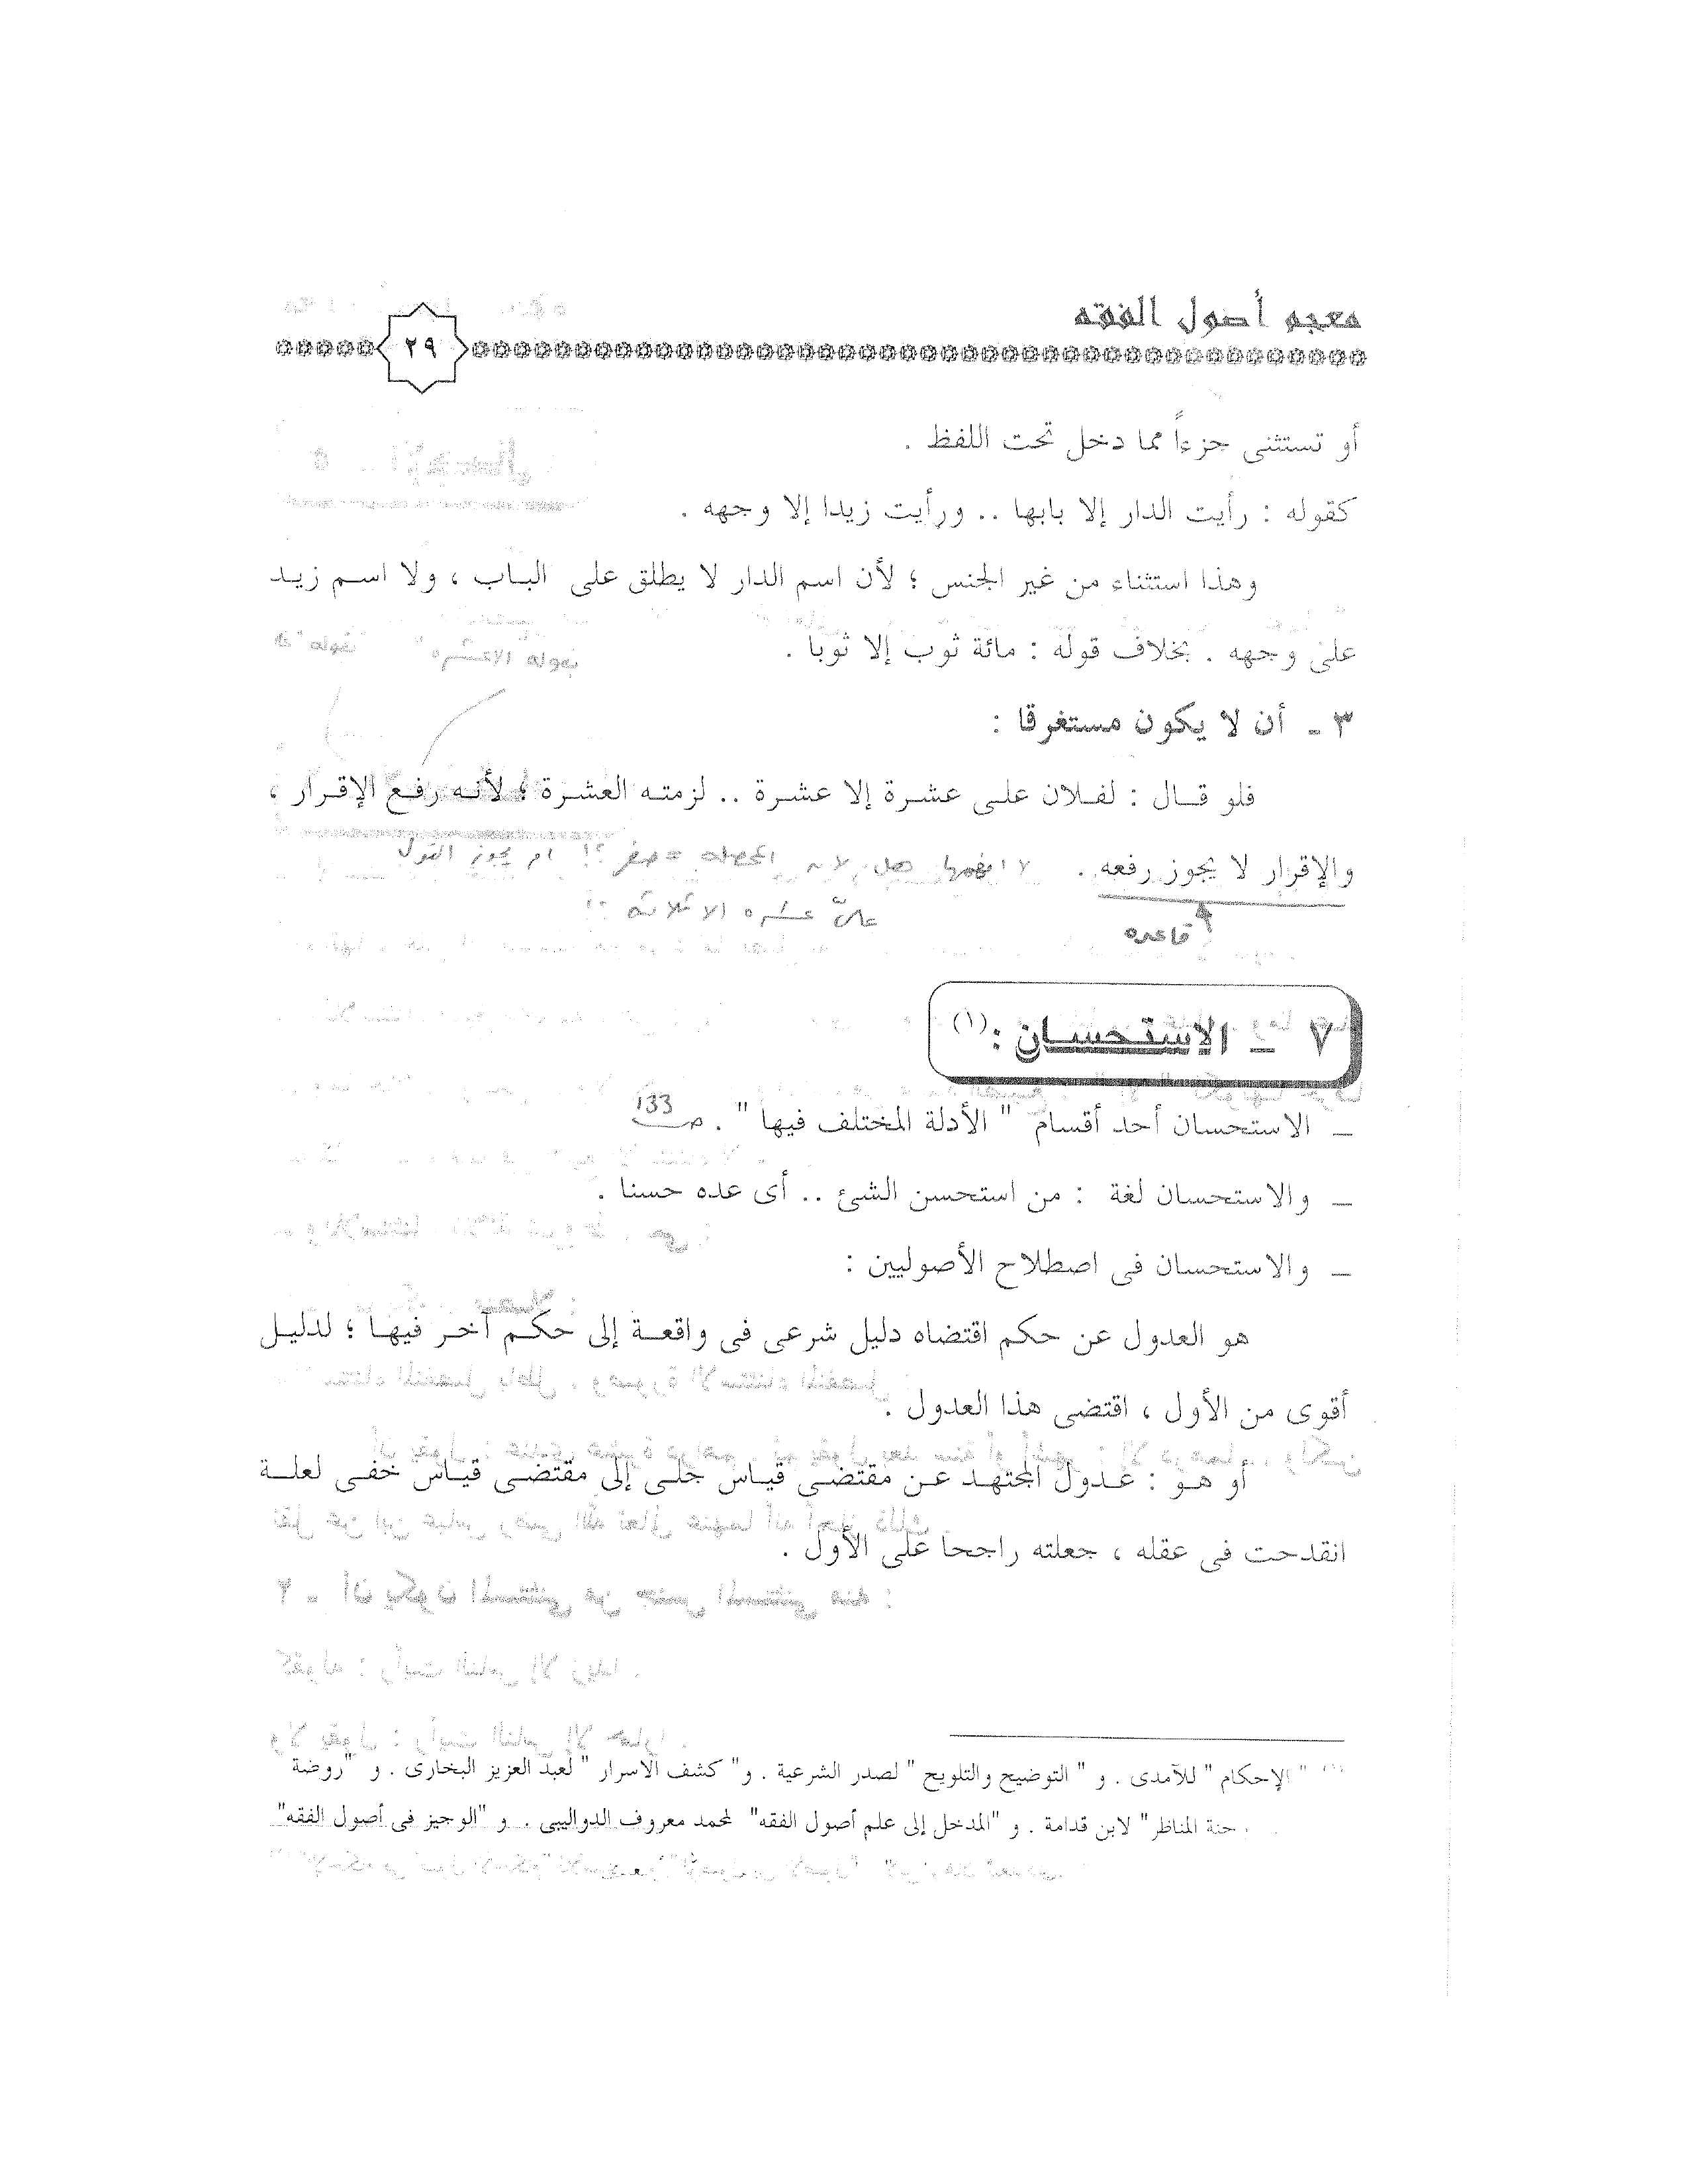 معجم أصول الفقه
٢٩
أو تستثنى جزءاً مما دخل تحت اللفظ .
كقوله : رأيت الدار إلا بابها .. ورأيت زيدا إلا وجهه .
وهذا استثناء من غير الجنس ؛ لأن اسم الدار لا يطلق على الباب ، ولا اسم زيد
على وجهه . بخلاف قوله : مائة ثوب إلا ثوبا .
٣ ـ أن لا يكون مستغرقا :
فلو قال : لفلان على عشرة إلا عشرة .. لزمته العشرة ؛ لأنه رفع الإقرار ،
والإقرار لا يجوز رفعه . لا افهمها هل لأن المحصلة = صفر ؟! ام يجوز القول
عليّ عشره الا ثلاثة ؟!
قاعده
٧ ـ الاستحسان :(١)
ـ الاستحسان أحد أقسام " الأدلة المختلف فيها " . ص 133
ـ والاستحسان لغة : من استحسن الشئ .. أى عده حسنا .
ـ والاستحسان فى اصطلاح الأصوليين :
هو العدول عن حكم اقتضاه دليل شرعى فى واقعة إلى حكم آخر فيها ؛ لدليل
أقوى من الأول ، اقتضى هذا العدول .
أو هو : عدول المجتهد عن مقتضى قياس جلى إلى مقتضى قياس خفى لعلة
انقدحت فى عقله ، جعلته راجحا على الأول .
(١) " الإحكام " للآمدى . و " التوضيح والتلويح " لصدر الشرعية . و" كشف الاسرار " لعبد العزيز البخارى . و "روضة
حنة المناظر" لابن قدامة . و "المدخل إلى علم أصول الفقه" لمحمد معروف الدواليبى . و "الوجيز فى أصول الفقه"